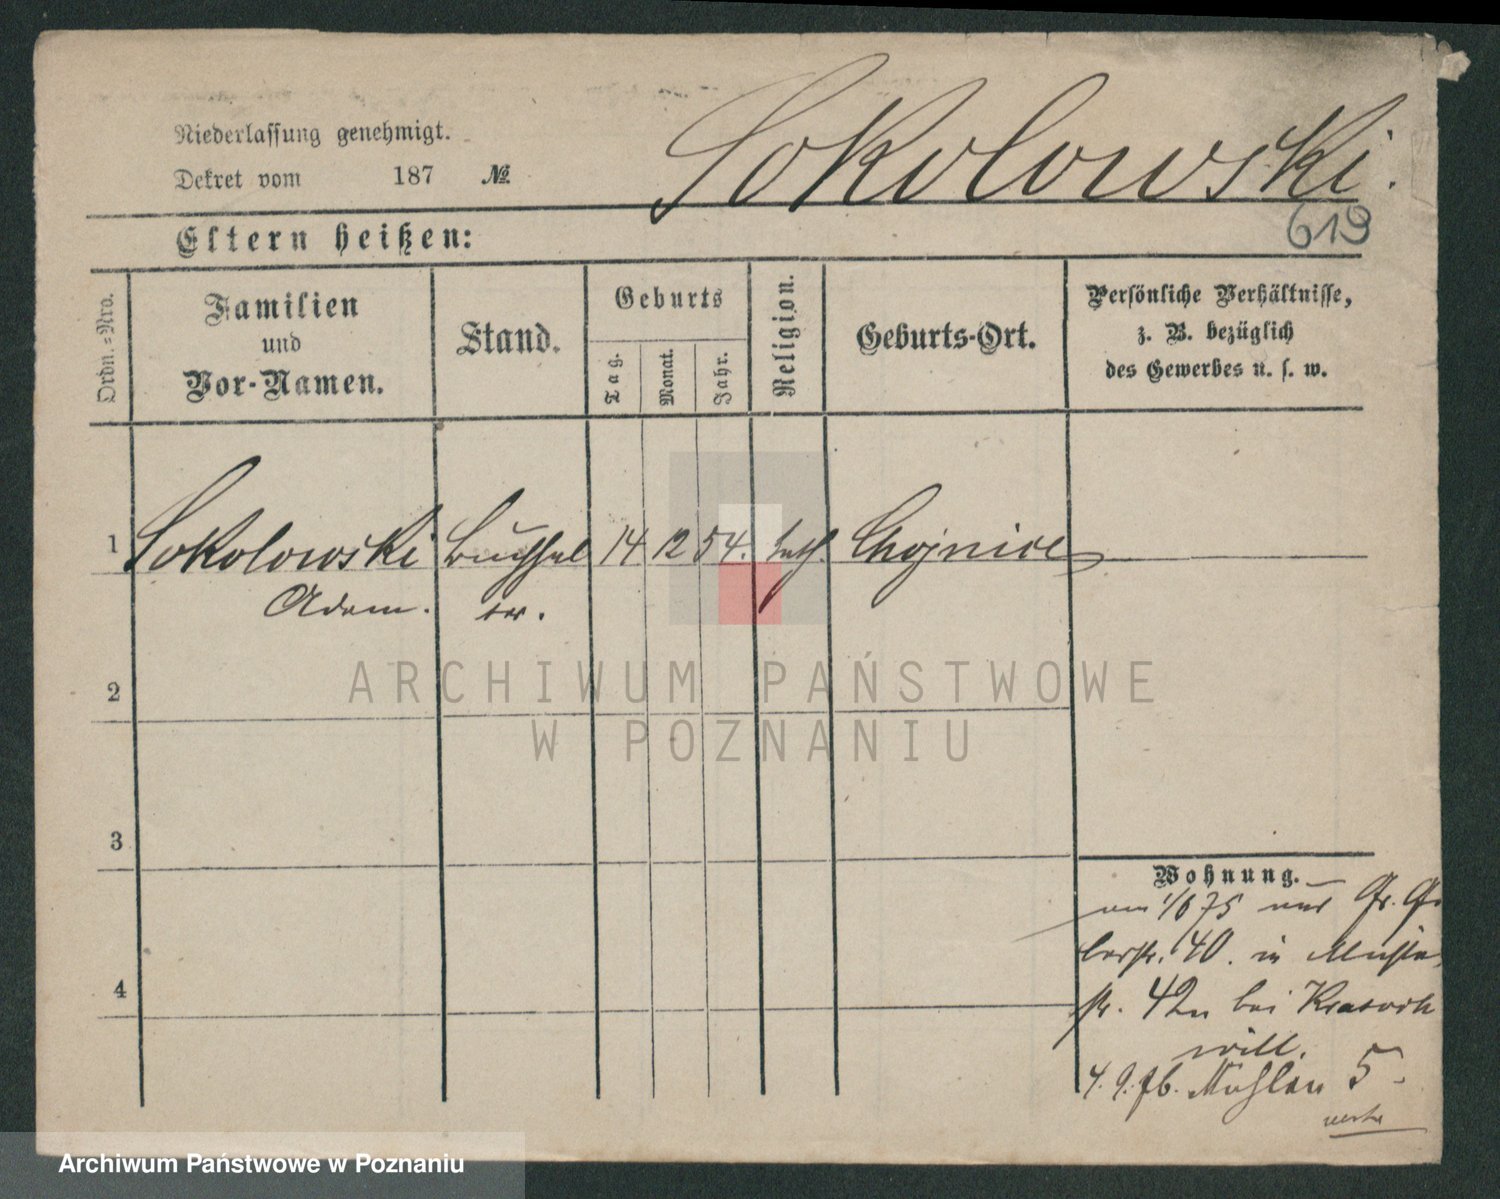 Niederlassung genehmigt.
Dekret vom 187 №
Sokolowski.
619
Eltern heißen:
Ordn.-Nro.
Familien
und
Vor-Namen.
Stand.
Geburts
Tag.
Monat.
Jahr.
Religion.
Geburts-Ort.
Persönliche Verhältnisse,
z. B. bezüglich
des Gewerbes u. s. w.
1 Sokolowski 14 12 54. kath. Chojnice
Adam.
2
3
4
Wohnung.
1/6 75 Gr. Ger
berstr. 40. in Mühlen
str. 42 bei
4. 9. 76. Mühlen 5
ARCHIWUM PAŃSTWOWE
W POZNANIU
Archiwum Państwowe w Poznaniu